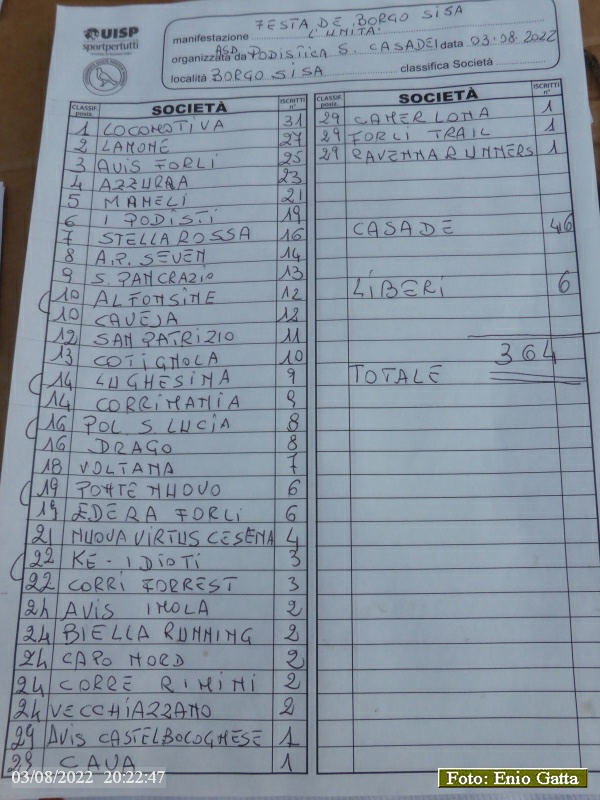 UISP
sportpertutti
manifestazione FESTA DE BORGO SISA
L'UNITA'
organizzata da ASD PODISTICA S. CASADEI data 03.08.2022
località BORGO SISA classifica Società
CLASSIF. posto SOCIETÀ ISCRITTI n°
1 LOCOMOTIVA 31
2 LAMONE 27
3 AVIS FORLI 25
4 AZZURRA 23
5 MAMELI 21
6 I PODISTI 19
7 STELLA ROSSA 16
8 A.P. SEVEN 14
9 S. PANCRAZIO 13
10 ALFONSINE 12
10 CAVEJA 12
12 SAN PATRIZIO 11
13 COTIGNOLA 10
14 LUGHESINA 9
14 CORRIMANIA 9
16 POL S LUCIA 8
16 DRAGO 8
18 VOLTANA 7
19 PONTE NUOVO 6
19 EDERA FORLI 6
21 NUOVA VIRTUS CESENA 4
22 KE-IDIOTI 3
22 CORRI FORREST 3
24 AVIS IMOLA 2
24 BIELLA RUNNING 2
24 CAPO NORD 2
24 CORRE RIMINI 2
24 VECCHIAZZANO 2
29 AVIS CASTELBOLOGNESE 1
29 CAVA 1
CLASSIF. posto SOCIETÀ ISCRITTI n°
29 CAMERLONA 1
29 FORLI TRAIL 1
29 RAVENNA RUNNERS 1
CASADE 46
LIBERI 6
TOTALE 364
03/08/2022 20:22:47
Foto: Enio Gatta